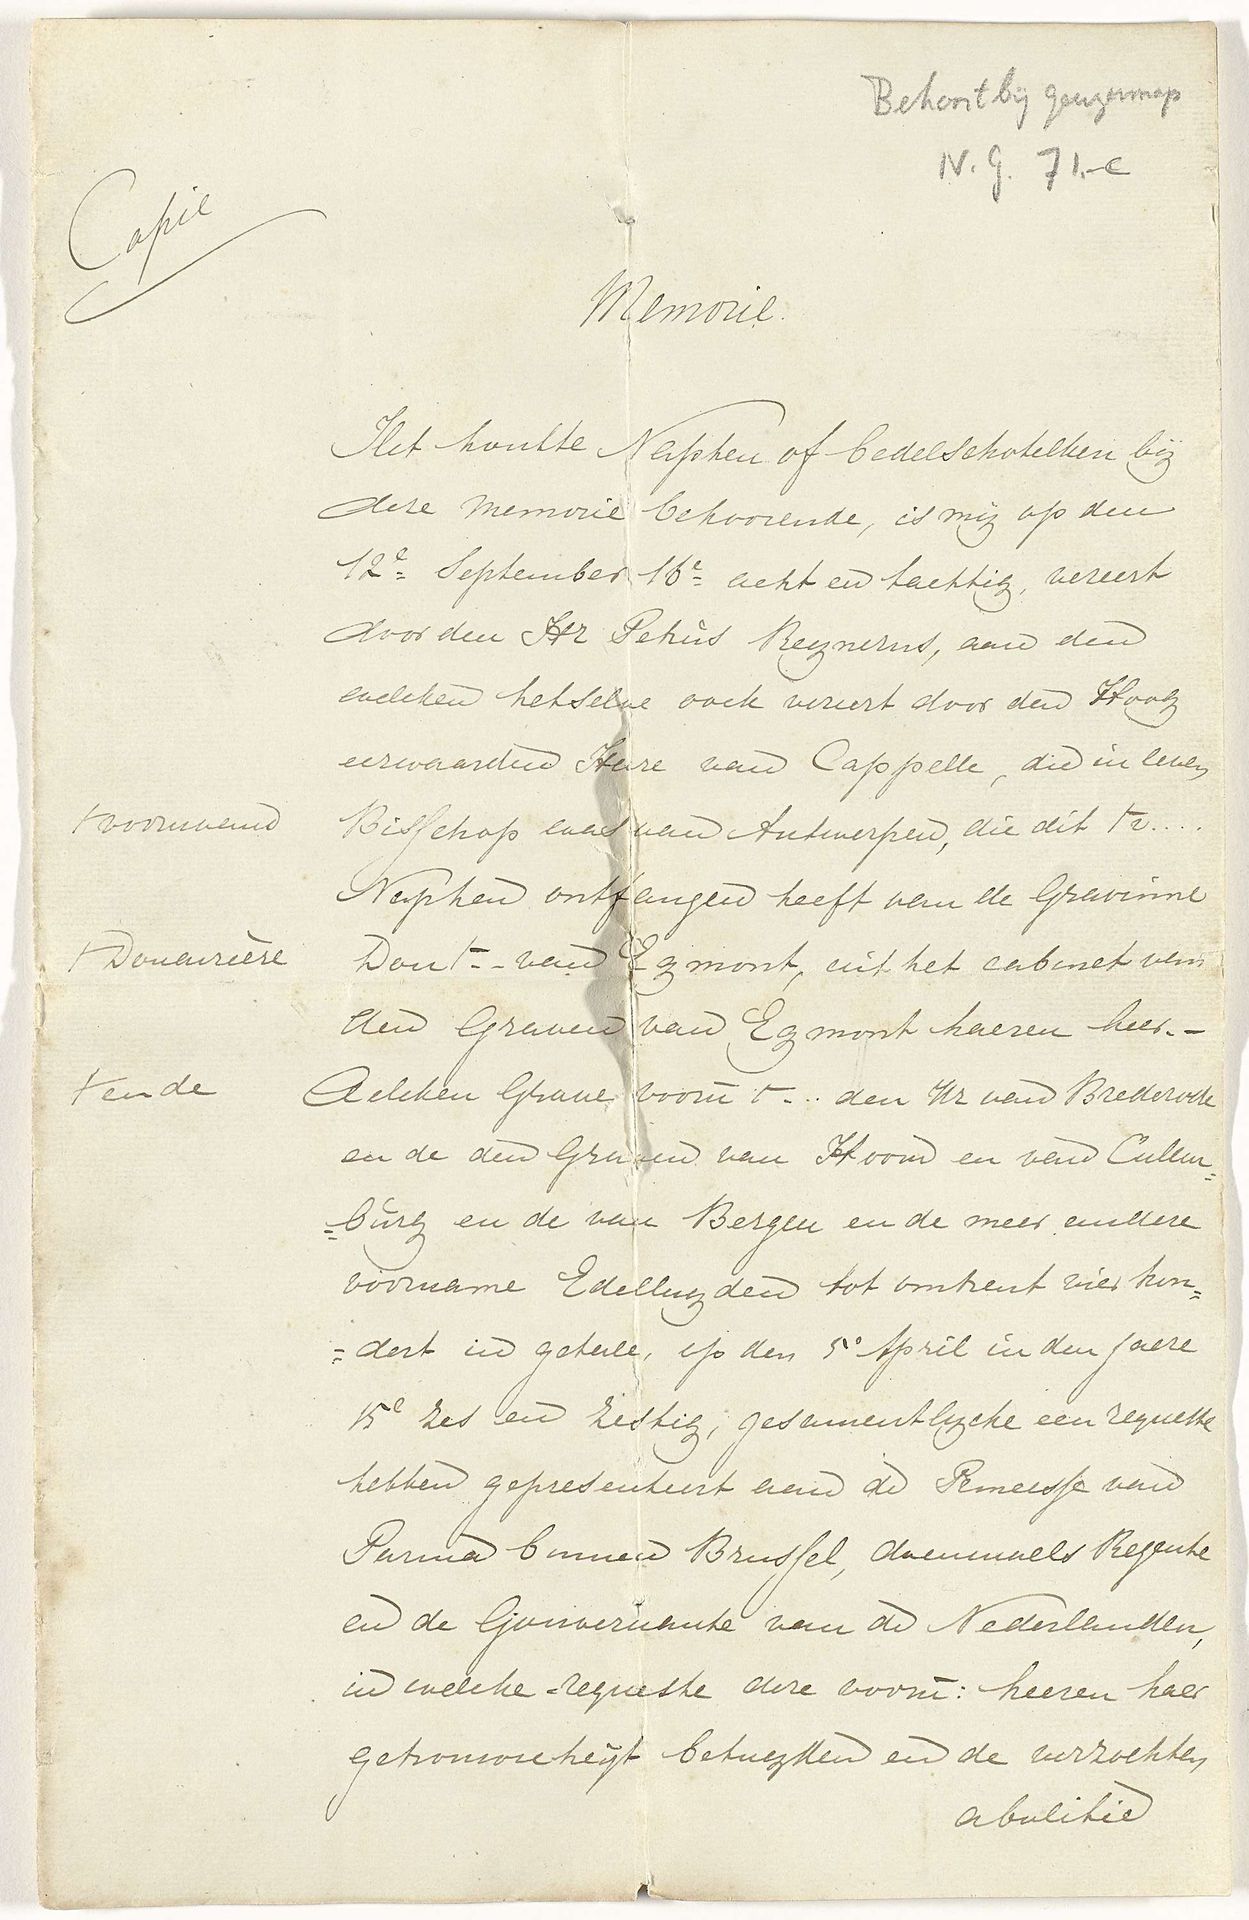 Behoort bij geuzennap
N.G. 71.-c
Copie
Memorie.
Het houtte Napken of bedelschotelken bij
dese memorie behoorende, is mij op den
12e= September 16e= acht en tachtig, vereert
door den Hr Petrus Reynerus, aan den
welcken hetselve oock vereert door den Hoog
eerwaarden Heere van Cappelle, die in leven
† voornaemd
Bisschop was van Antwerpen, die dit † v....
Napken ontfangen heeft van de Gravinne
† Douairière
Dou † -- van Egmont, uit het cabinet van
den Graven van Egmont haeren heer.-
† ende
Welcken Grave voorn † -.. den Hr van Brederode
en de den Graven van Hoorn en van Cullen=
=burg en de van Bergen en de meer andere
voorname Edelluyden tot omtrent vier hon=
=dert in getale, op den 5e April in den jaere
15e zes en zestig, gesamentlycke een requeste
hebben gepresenteert aan de Princesse van
Parma binnen Brussel, doenmaels Regente
en de Gouvernante van de Nederlanden,
in welcke requeste dese voorn: heeren haer
getrouwicheyt betuygden en de verzochten
abolitie